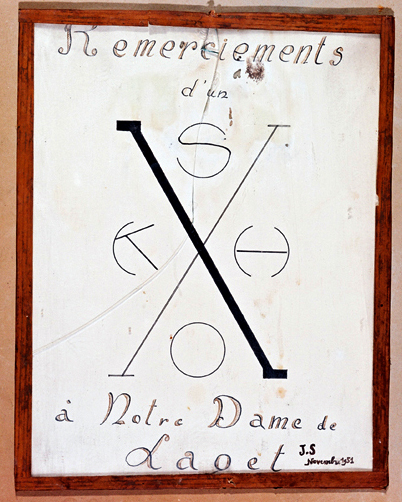 Remerciements
à
d'un
S
K X H
O
à Notre Dame de
Laget
J.S
Novembre 1951